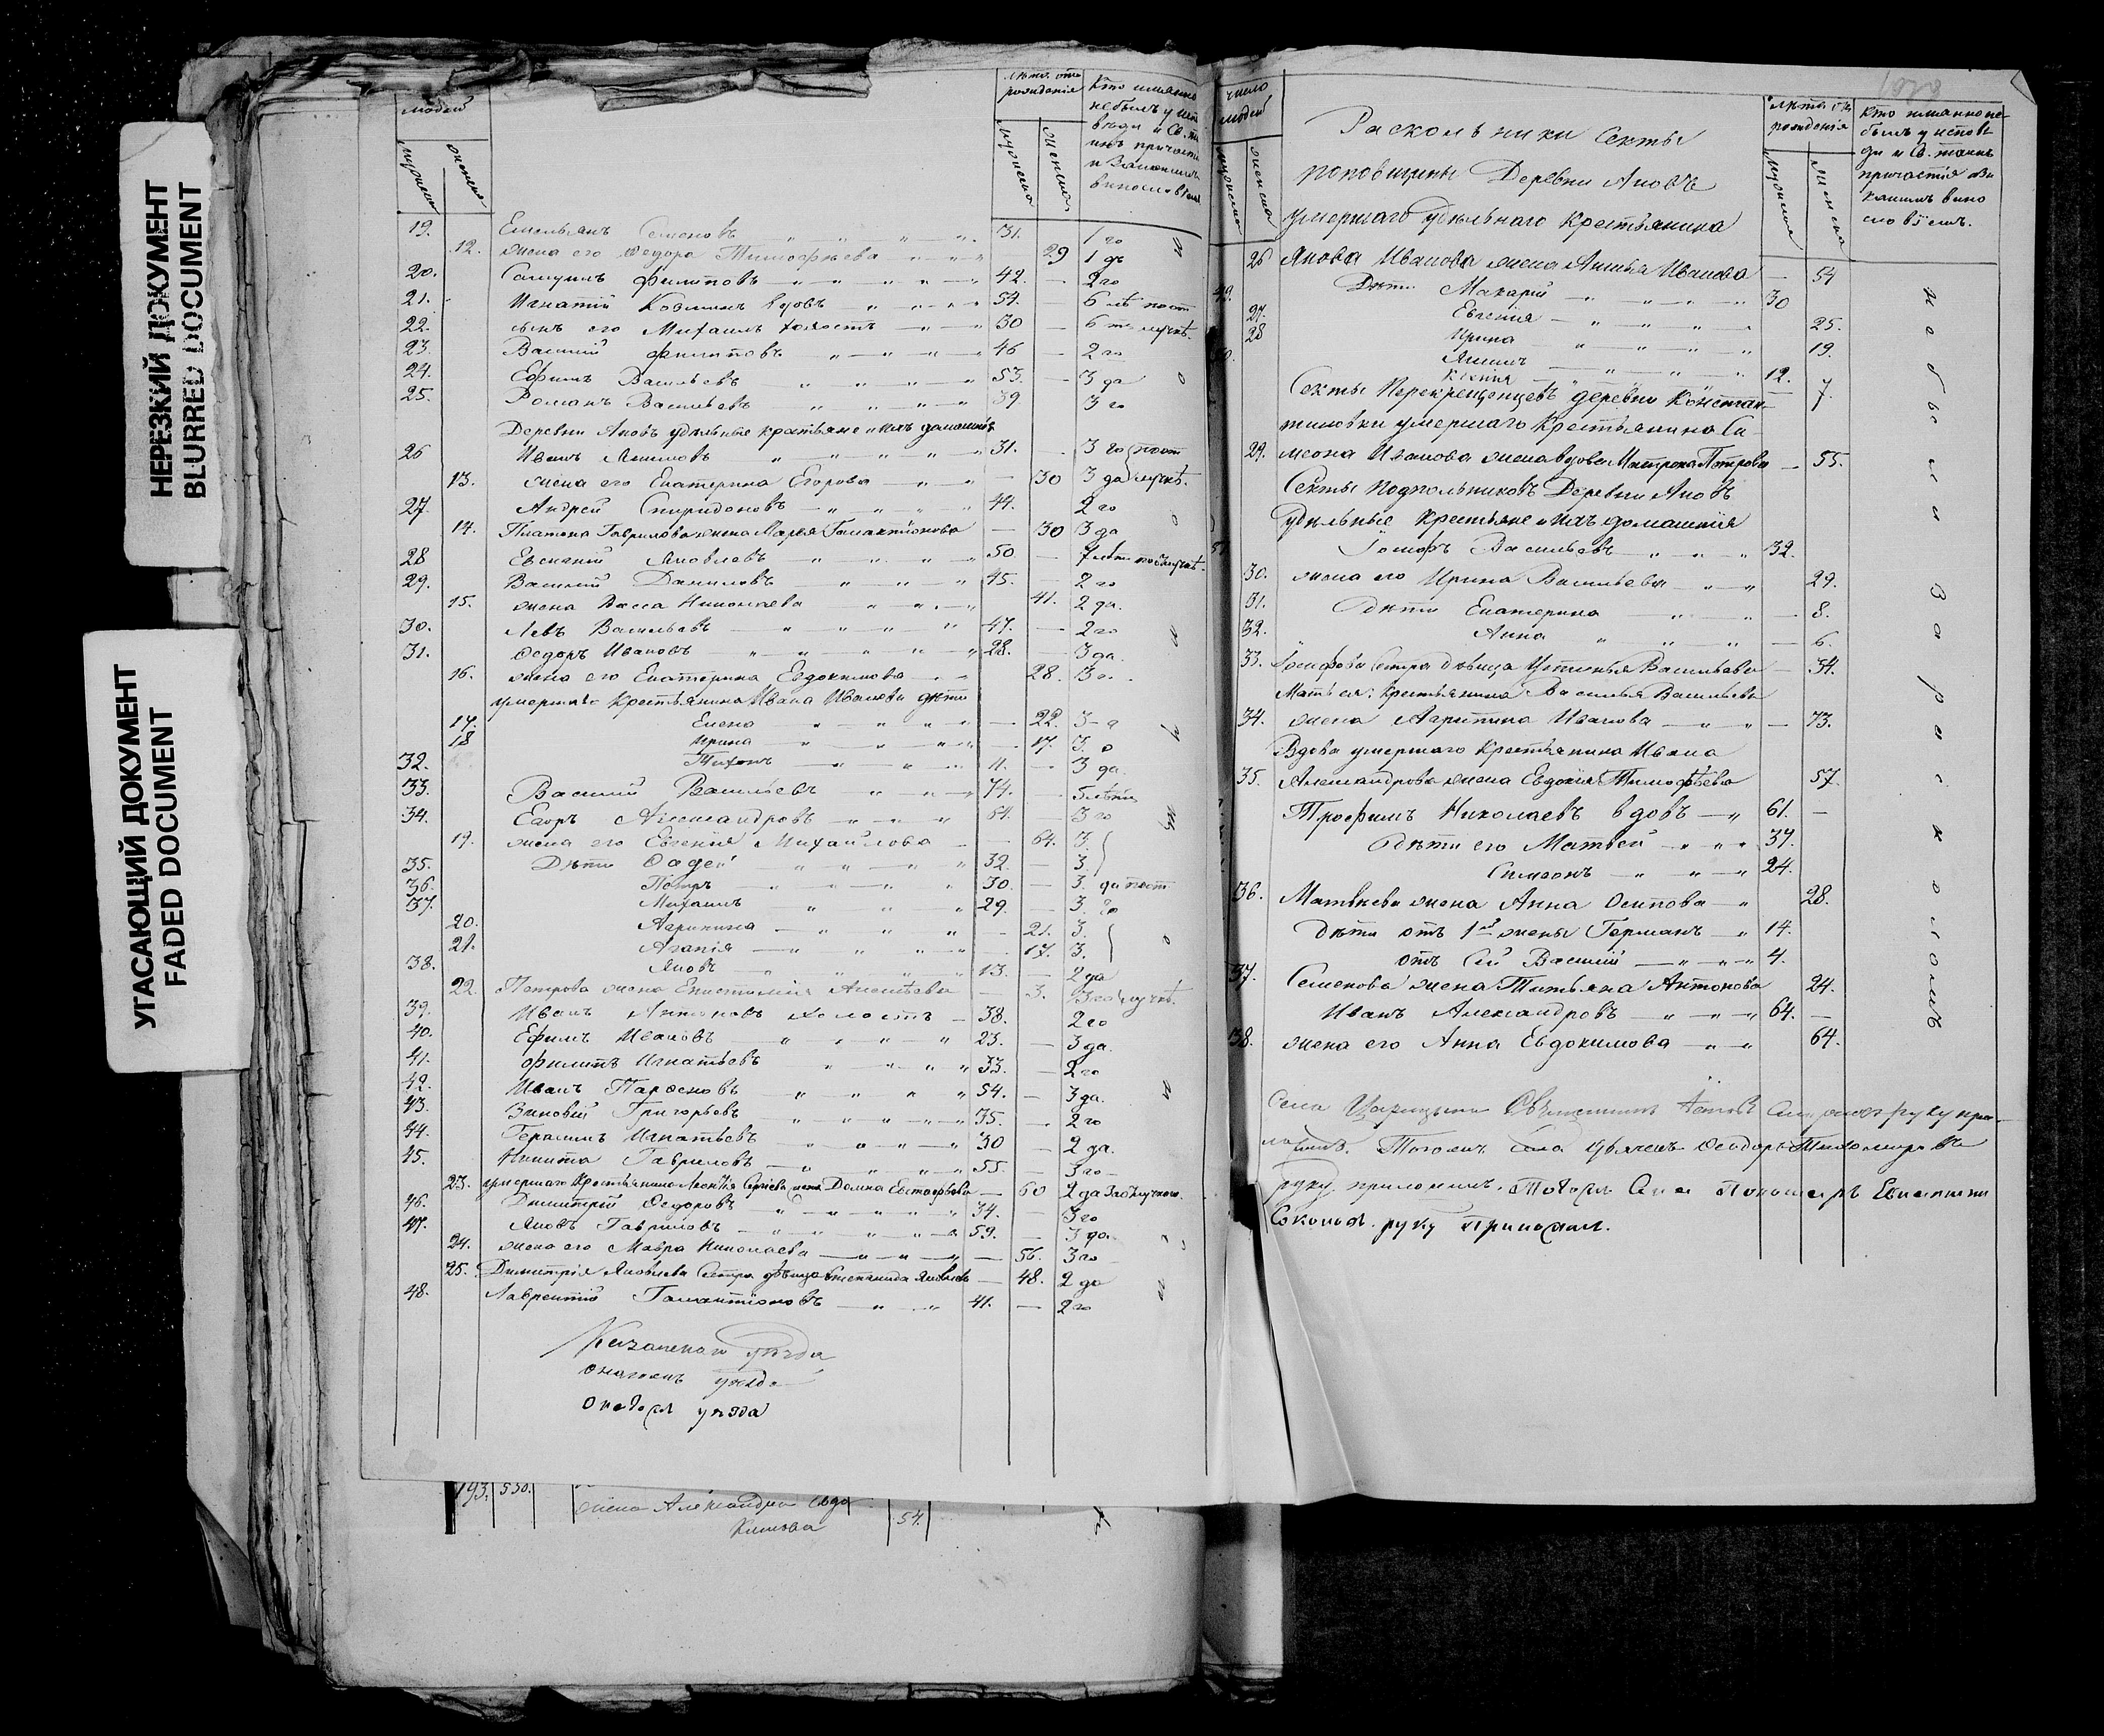 НЕРЕЗКИЙ ДОКУМЕНТ
BLURRED DOCUMENT
УГАСАЮЩИЙ ДОКУМЕНТ
FADED DOCUMENT
людей
мужеска
женска
лѣта отъ рожденія
мужеска
женска
Кто именно
не былъ у испо
вѣди и Св. та
инъ причастія
19. Емельянъ Семеновъ 31. 1 го
12. жена его Ѳедора Тимофѣева 29 1 дъ
20. Самуилъ Филиповъ 42. 2 го
21. Игнатій Козминъ вдовъ 54. 6 лѣ
22. сынъ его Михаилъ холостъ 30 6
23. Василій Филиповъ 46 2 го
24. Ефимъ Васильевъ 53. 3 да
25. Романъ Васильевъ 39 3 го
Деревни Яновъ удѣльные крестьяне и ихъ домашнія
26 Иванъ Якимовъ 31. 3 го
13. жена его Екатерина Егорова 30 3 да
27. Андрей Спиридоновъ 44. 2 го
14. Платона Гаврилова жена Марья Галактіонова 30 3 да
28 Евсигній Яковлевъ 50
29. Василій Даниловъ 45. 2 го
15. жена Васса Николаева 41. 2 да.
30. Левъ Васильевъ 47. 2 го
31. Ѳедоръ Ивановъ 28. 3 да.
16. жена его Екатерина Евдокимова 28. 3
умершаго Крестьянина Ивана Иванова дѣти
17. Елена 22. 3
18 Ирина 17. 3.
32. Тихонъ 11. 3 да.
33. Василій Васильевъ 74. 5
34. Егоръ Александровъ 64. 3 го
19. жена его Евгенія Михайлова 64. 3.
35. Дѣти Ѳадей 32 3
36. Петръ 30. 3. да
37. Михаилъ 29. 3. го
20. Агрипина 21. 3.
21. Агапія 17. 3.
38. Яковъ 13. 2 да
22. Петрова жена Епистимія Алексѣева 3. 3 го
39. Иванъ Антоновъ холостъ 38. 2 го
40. Ефимъ Ивановъ 23. 3 да.
41. Филипъ Игнатьевъ 33. 2 го
42. Иванъ Парѳеновъ 54. 3 да.
43. Зиновій Григорьевъ 35. 2 го
44. Герасимъ Игнатьевъ 30 2 да.
45. Никита Гавриловъ 55. 3 го
23. умершаго Крестьянина Леонтія Сергѣева жена Домна Евстафьева 60 2 да
46. Димитрій Ѳедоровъ 34. 3 го
47. Яковъ Гавриловъ 59. 3 да
24. жена его Мавра Николаева 56. 3 го
25. Димитрія Яковлева Сестра дѣвица Степанида Яковлева 48. 2 да
48. Лаврентій Галактіоновъ 41. 2 го
Казанскаго уѣзда
193. 550.
жена Александра Евдо
кимова 54.
число
людей
мужеска
женска
Раскольники Секты
поповщины Деревни Яновъ
умершаго Удѣльнаго Крестьянина
лѣта отъ
рожденія
мужеска
женска
Кто именно не
былъ у испове
ди и Св. таинъ
причастія за
какимъ вино
словіемъ.
26 Якова Иванова жена Анисья Иванова 54
49. Дѣти Макарій 30
27. Евгенія 25.
28 Ирина 19.
50. Якимъ 12.
Ксенія 7.
Секты Перекрещенцевъ деревни Констан-
тиновки умершаго Крестьянина Си-
29. меона Иванова жена вдова Матрона Петрова 55.
Секты Подпольниковъ Деревни Яновъ
Удѣльные Крестьяне и ихъ домашнія
51 Іосифъ Васильевъ 32.
30. жена его Ирина Васильева 29.
31. Дѣти Екатерина 8.
32. Анна 6.
33. Іосифова Сестра дѣвица Устинья Васильева 34.
Мать ея: Крестьянина Василья Васильева
34. жена Агрипина Иванова 73.
Вдова умершаго Крестьянина Ивана
35. Александрова жена Евдокія Тимофѣева 57.
Трофимъ Николаевъ вдовъ 61.
дѣти его Матвей 37.
Симеонъ 24.
36. Матвѣева жена Анна Осипова 28.
Дѣти отъ 1й жены Германъ 14.
отъ Сей Василій 4.
37. Семенова жена Татьяна Антонова 24.
Иванъ Александровъ 64.
38. жена его Анна Евдокимова 64.
не были За расколомъ
Села Царицына Священникъ руку при-
ложилъ. Тогожъ Села Дьячекъ Ѳеодоръ Тихомировъ
руку приложилъ. Тогожъ Села Пономарь
Соколовъ руку приложилъ.